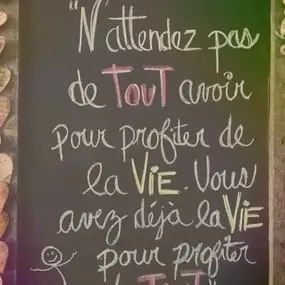 "N'attendez pas
de TOUT avoir
pour profiter de
la VIE. Vous
avez déjà la VIE
pour profiter
de TOUT"